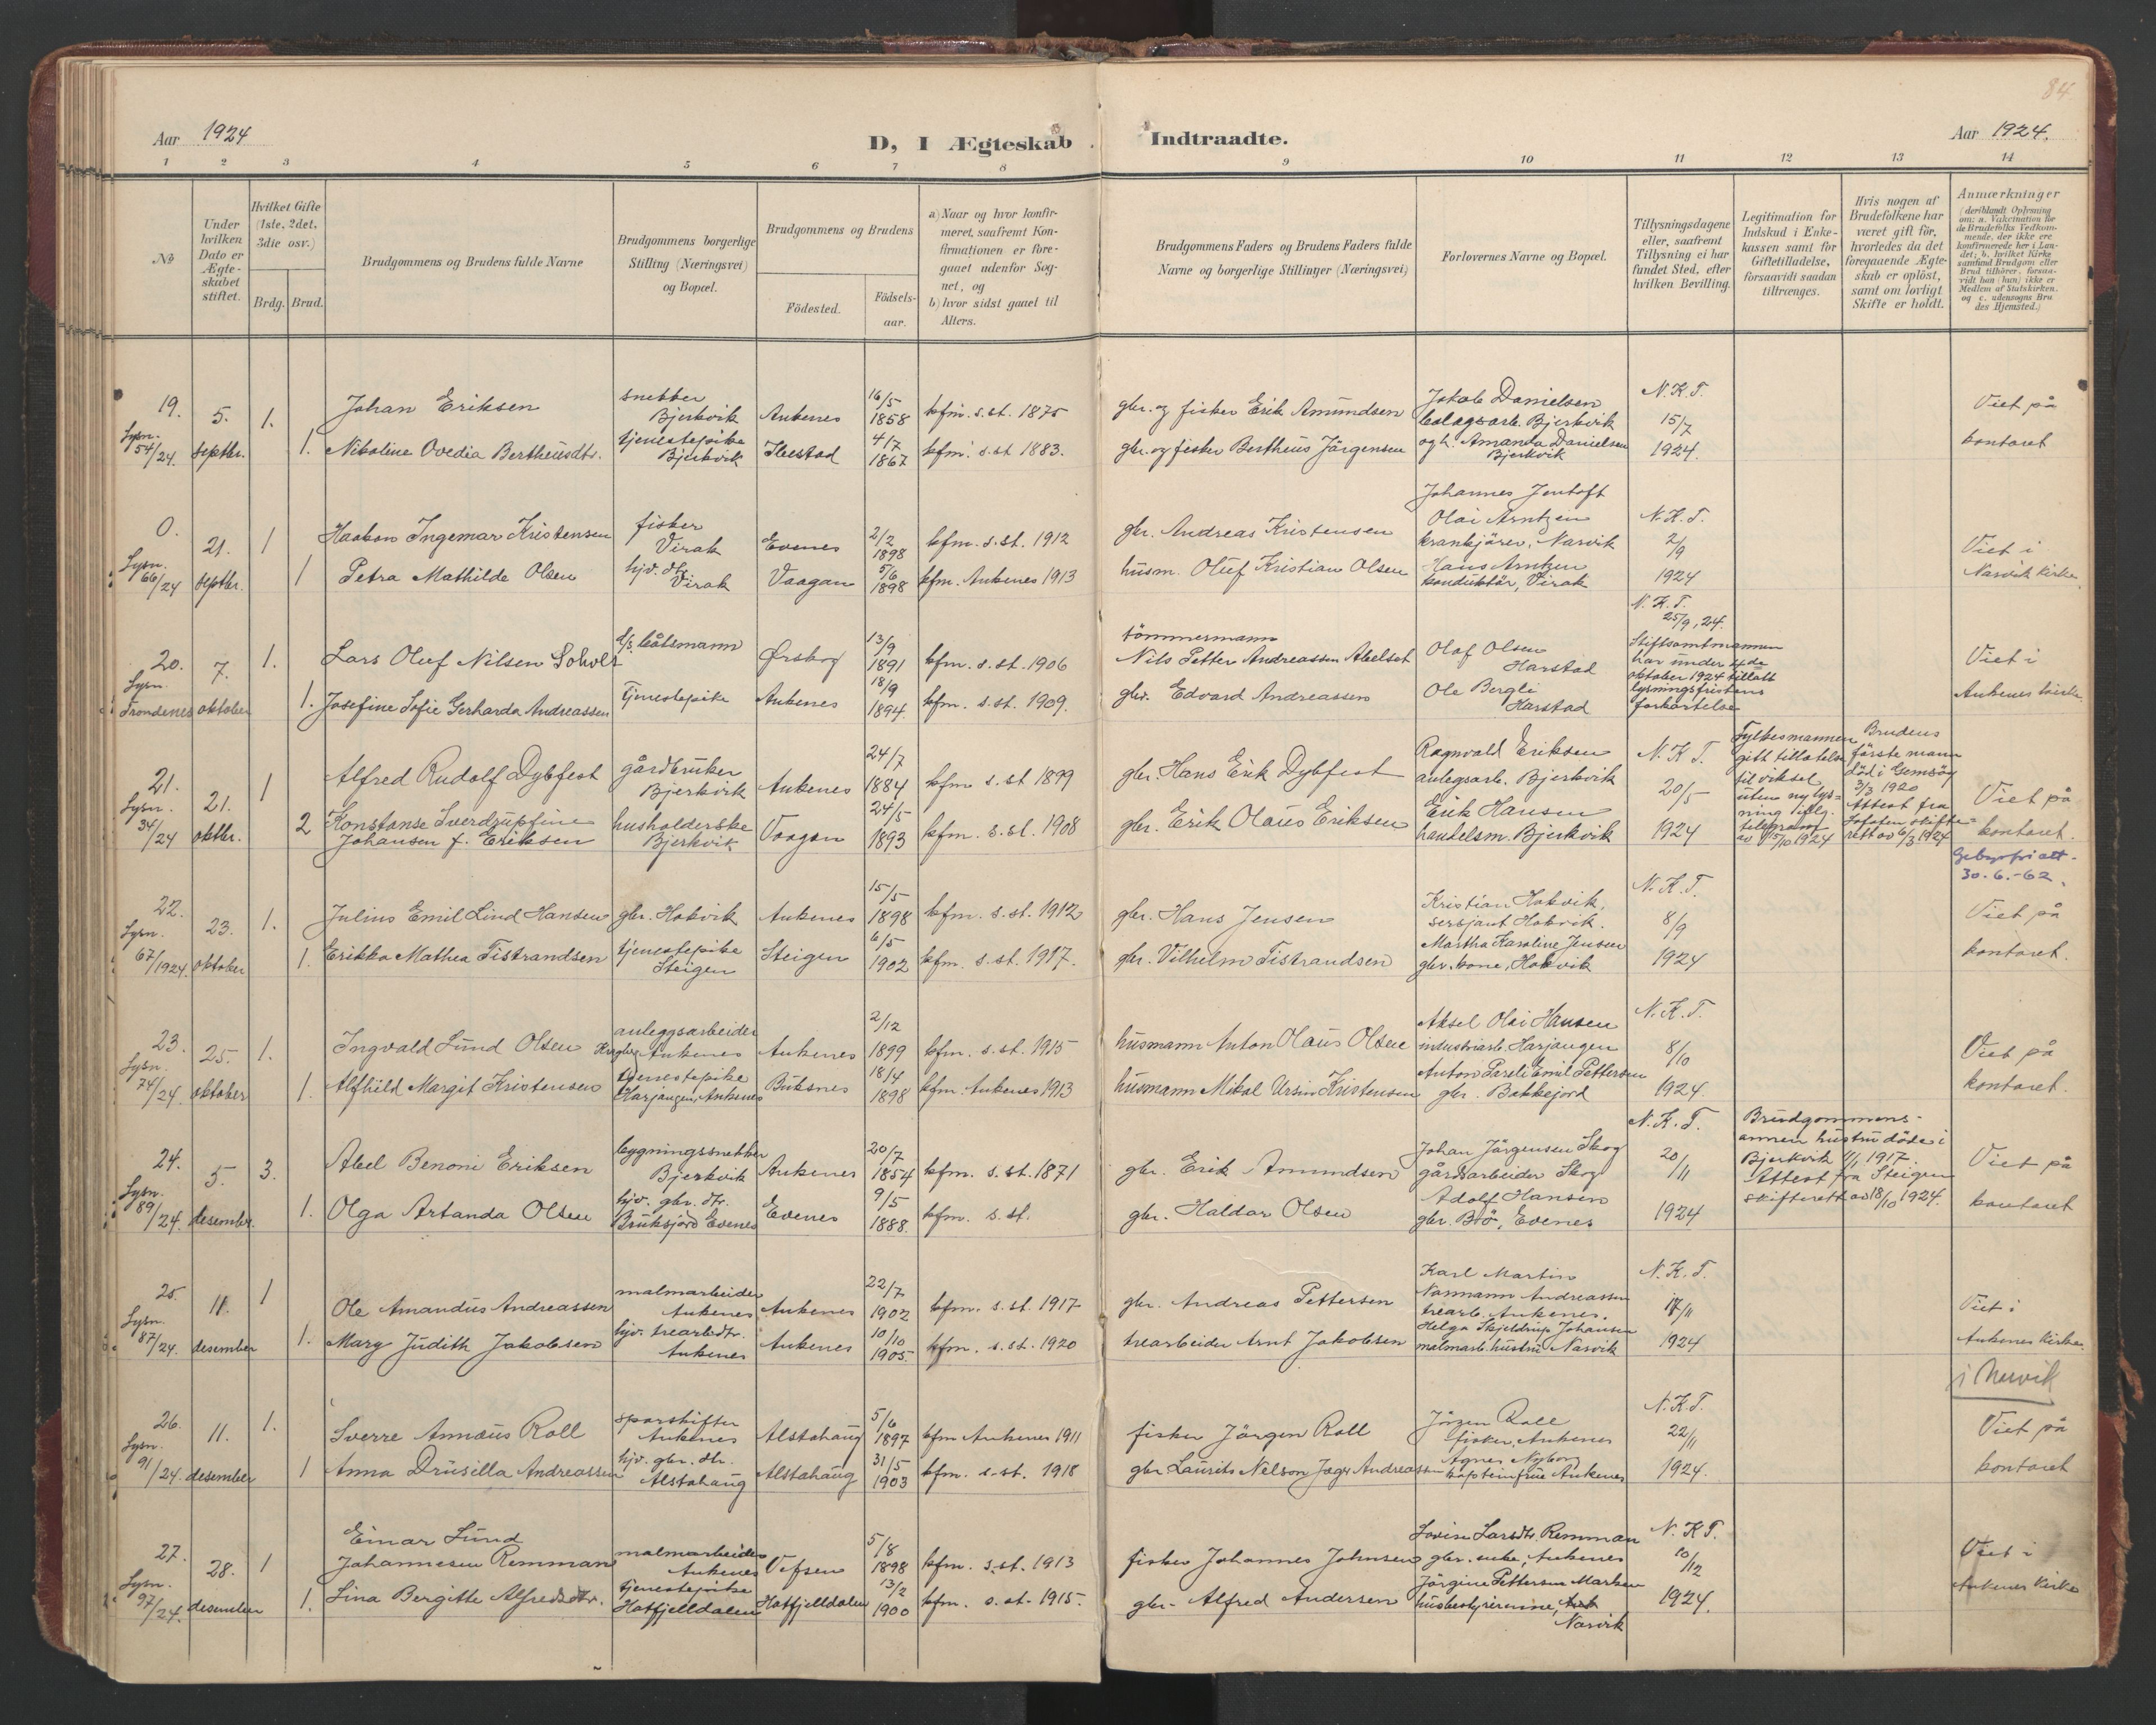 84
Aar 1924
D, I Ægteskab Indtraadte.
Aar 1924.
1 2 3 4 5 6 7 8 9 10 11 12 13 14
No
Under hvilken Dato er Ægteskabet stiftet.
Hvilket Gifte (1ste, 2det, 3die osv.)
Brdg. Brud.
Brudgommens og Brudens fulde Navne
Brudgommens borgerlige Stilling (Næringsvei) og Bopæl.
Brudgommens og Brudens
Födested.
Födselsaar.
a) Naar og hvor konfirmeret, saafremt Konfirmationen er foregaaet udenfor Sognet, og
b) hvor sidst gaaet til Alters.
Brudgommens Faders og Brudens Faders fulde Navne og borgerlige Stillinger (Næringsvei)
Forlovernes Navne og Bopæl.
Tillysningsdagene eller, saafremt Tillysning ei har fundet Sted, efter hvilken Bevilling.
Legitimation for Indskud i Enkekassen samt for Giftetilladelse, forsaavidt saadan tiltrænges.
Hvis nogen af Brudefolkene har været gift för, hvorledes da det foregaaende Ægteskab er oplöst, samt om lovligt Skifte er holdt.
Anmærkninger
(deriblandt Oplysning om: a. Vakcination for de Brudefolks Vedkommende, der ikke ere konfirmerede her i Landet; b. hvilket Kirkesamfund Brudgom eller Brud tilhörer, forsaavidt han (hun) ikke er Medlem af Statskirken. og c. udensogns Brudes Hjemsted.)
19. Lysn. 54/24. 5. septbr. 1. Johan Eriksen snekker Bjerkvik Ankenes 16/5 1858 kfm. s. st. 1875 gbr. og fisker Erik Amundsen Jakob Danielsen anlegsarb. Bjerkvik N.K.T. 15/7 1924. Viet på kontoret
1. Nikoline Ovedia Bertheusdtr. tjenestepike Bjerkvik Ibestad 4/7 1867 kfm. s. st. 1883. gbr. og fisker Bertheus Jörgensen og h. Amanda Danielsen Bjerkvik
0. Lysn. 66/24 21. septbr. 1 Haakon Ingemar Kristensen fisker Virak Evenes 2/2 1898 kfm. s. st. 1912 gbr. Andreas Kristensen Johannes Jentoft Olai Arntzen krankjörer, Narvik N.K.T. 2/9 1924 Viet i Narvik kirke.
1 Petra Mathilde Olsen hjv. dtr. Virak Vaagan 5/6 1898 kfm. Ankenes 1913 husm. Oluf Kristian Olsen Hans Arntzen konduktör, Virak
20. Lysn. Trondenes 7. oktober 1. Lars Oluf Nilsen Solvols d/s båtsmann Ørskog 13/9 1891 kfm. s. st. 1906 tömmermann Nils Petter Andreassen Abelset Olaf Olsen Harstad N.K.T. 25/9, 24. Stiftsamtmannen har under 4de oktober 1924 tillatt lysningsfristens forkortelse Viet i Ankenes kirke.
1. Josefine Sofie Gerharda Andreassen Tjenestepike Ankenes 18/9 1894. kfm. s. st. 1909. gbr. Edvard Andreassen Ole Bergli Harstad
21. Lysn. 34/24 21. oktbr. 1 Alfred Rudolf Dybfest gårdbruker Bjerkvik Ankenes 24/7 1884 kfm s. st 1899 gbr. Hans Erik Dybfest Ragnvald Eriksen anlegsarb. Bjerkvik N.K.T. 20/5 1924 Fylkesmannen gitt tillatelse til viksel uten ny lysning iflg. telegram av 15/10 1924 Brudens förste mann död i Gimsöy 3/3 1920 Attest fra Lofoten skifterett av 6/3 1924 Viet på kontoret.
2 Konstanse Sverdrupfine Johansen f. Eriksen husholderske Bjerkvik Vaagan 24/5 1893 kfm. s. st. 1908 gbr. Erik Olaus Eriksen Erik Hansen handelsm. Bjerkvik
Gebyrfri att. 30.6.-62.
22. Lysn. 67/1924 23. oktober 1. Julius Emil Lind Hansen gbr. Hakvik Ankenes 15/5 1898 kfm. s. st. 1912 gbr. Hans Jensen Kristian Hakvik, sersjant Hakvik. N.K.T. 8/9 1924 Viet på kontoret.
1. Erikka Mathea Tistrandsen tjenestepike Steigen Steigen 6/5 1902 kfm. s. st. 1917. gbr. Vilhelm Tistrandsen Martha Karoline Jensen gbr. kone, Hakvik
23. Lysn. 74/24. 25. oktober 1. Ingvald Lund Olsen anleggsarbeider Ankenes Ankenes 2/12 1899 kfm. s. st. 1915 husmann Anton Olaus Olsen Aksel Olai Hansen industriarb. Harjangen N.K.T. 8/10 1924. Viet på kontoret.
1. Alfhild Margit Kristensen tjenestepike Harjangen, Ankenes Buksnes 18/4 1898 kfm. Ankenes 1913 husmann Mikal Ursin Kristensen Anton Pareli Emil Pettersen gbr. Bakkejord
24. Lysn. 89/24. 5. desember. 3. Abel Benoni Eriksen bygningssnekker Bjerkvik Ankenes 20/7 1854 kfm. s. st. 1871 gbr. Erik Amundsen Johan Jörgensen Skog gårdsarbeider Skog N.K.T. 20/11 1924 Brudgommens annen hustru döde i Bjerkvik 1/1 1917. Attest fra Steigen skifterett av 18/10 1924. Viet på kontoret
1. Olga Artanda Olsen hjv. gbr. dtr. Evenes Evenes 9/5 1888. kfm. s. st. gbr. Haldor Olsen Adolf Hansen gbr. Bö, Evenes
25. Lysn. 87/24. 11. desember 1 Ole Amandus Andreassen malmarbeider Ankenes Ankenes 22/7 1902 kfm. s. st. 1917 gbr. Andreas Pettersen Karl Martin Normann Andreassen trearb. Ankenes. N.K.T. 17/11 1924 Viet i Ankenes kirke.
1. Mary Judith Jakobsen hjv. trearb.dtr. Ankenes Ankenes 10/10 1905. kfm. s. st. 1920 trearbeider Arnt Jakobsen Helga Skjeldrup Johansen malmarb. hustru Narvik
i Narvik
26. Lysn. 91/24. 11. desember 1. Sverre Annæus Roll sporskifter Ankenes Alstahaug 5/6 1897 kfm Ankenes 1911 fisker Jörgen Roll Jörgen Roll fisker, Ankenes N.K.T. 22/11 1924. Viet på kontoret
1 Anna Drusilla Andreassen hjv. gbr. dtr. Alstahaug Alstahaug 31/5 1903 kfm. s. st. 1918 gbr Laurits Nelson Jæger Andreassen Agnes Nyborg kapteinfrue Ankenes
27. Lysn. 97/24. 28. desember 1 Einar Lund Johannesen Remman malmarbeider Ankenes Vefsen 5/8 1898 kfm. s. st. 1913 fisker Johannes Johnsen Lovise Larsdtr. Remman gbr. enke, Ankenes N.K.T. 10/12 1924. Viet i Ankenes kirke
1. Lina Bergitte Alfredsdtr. tjenestepike Hatfjelldalen Hatfjelldalen 13/2 1900 kfm. s. st. 1915. gbr. Alfred Andersen Jörgine Pettersen Marken husbestyrerinne, Narvik